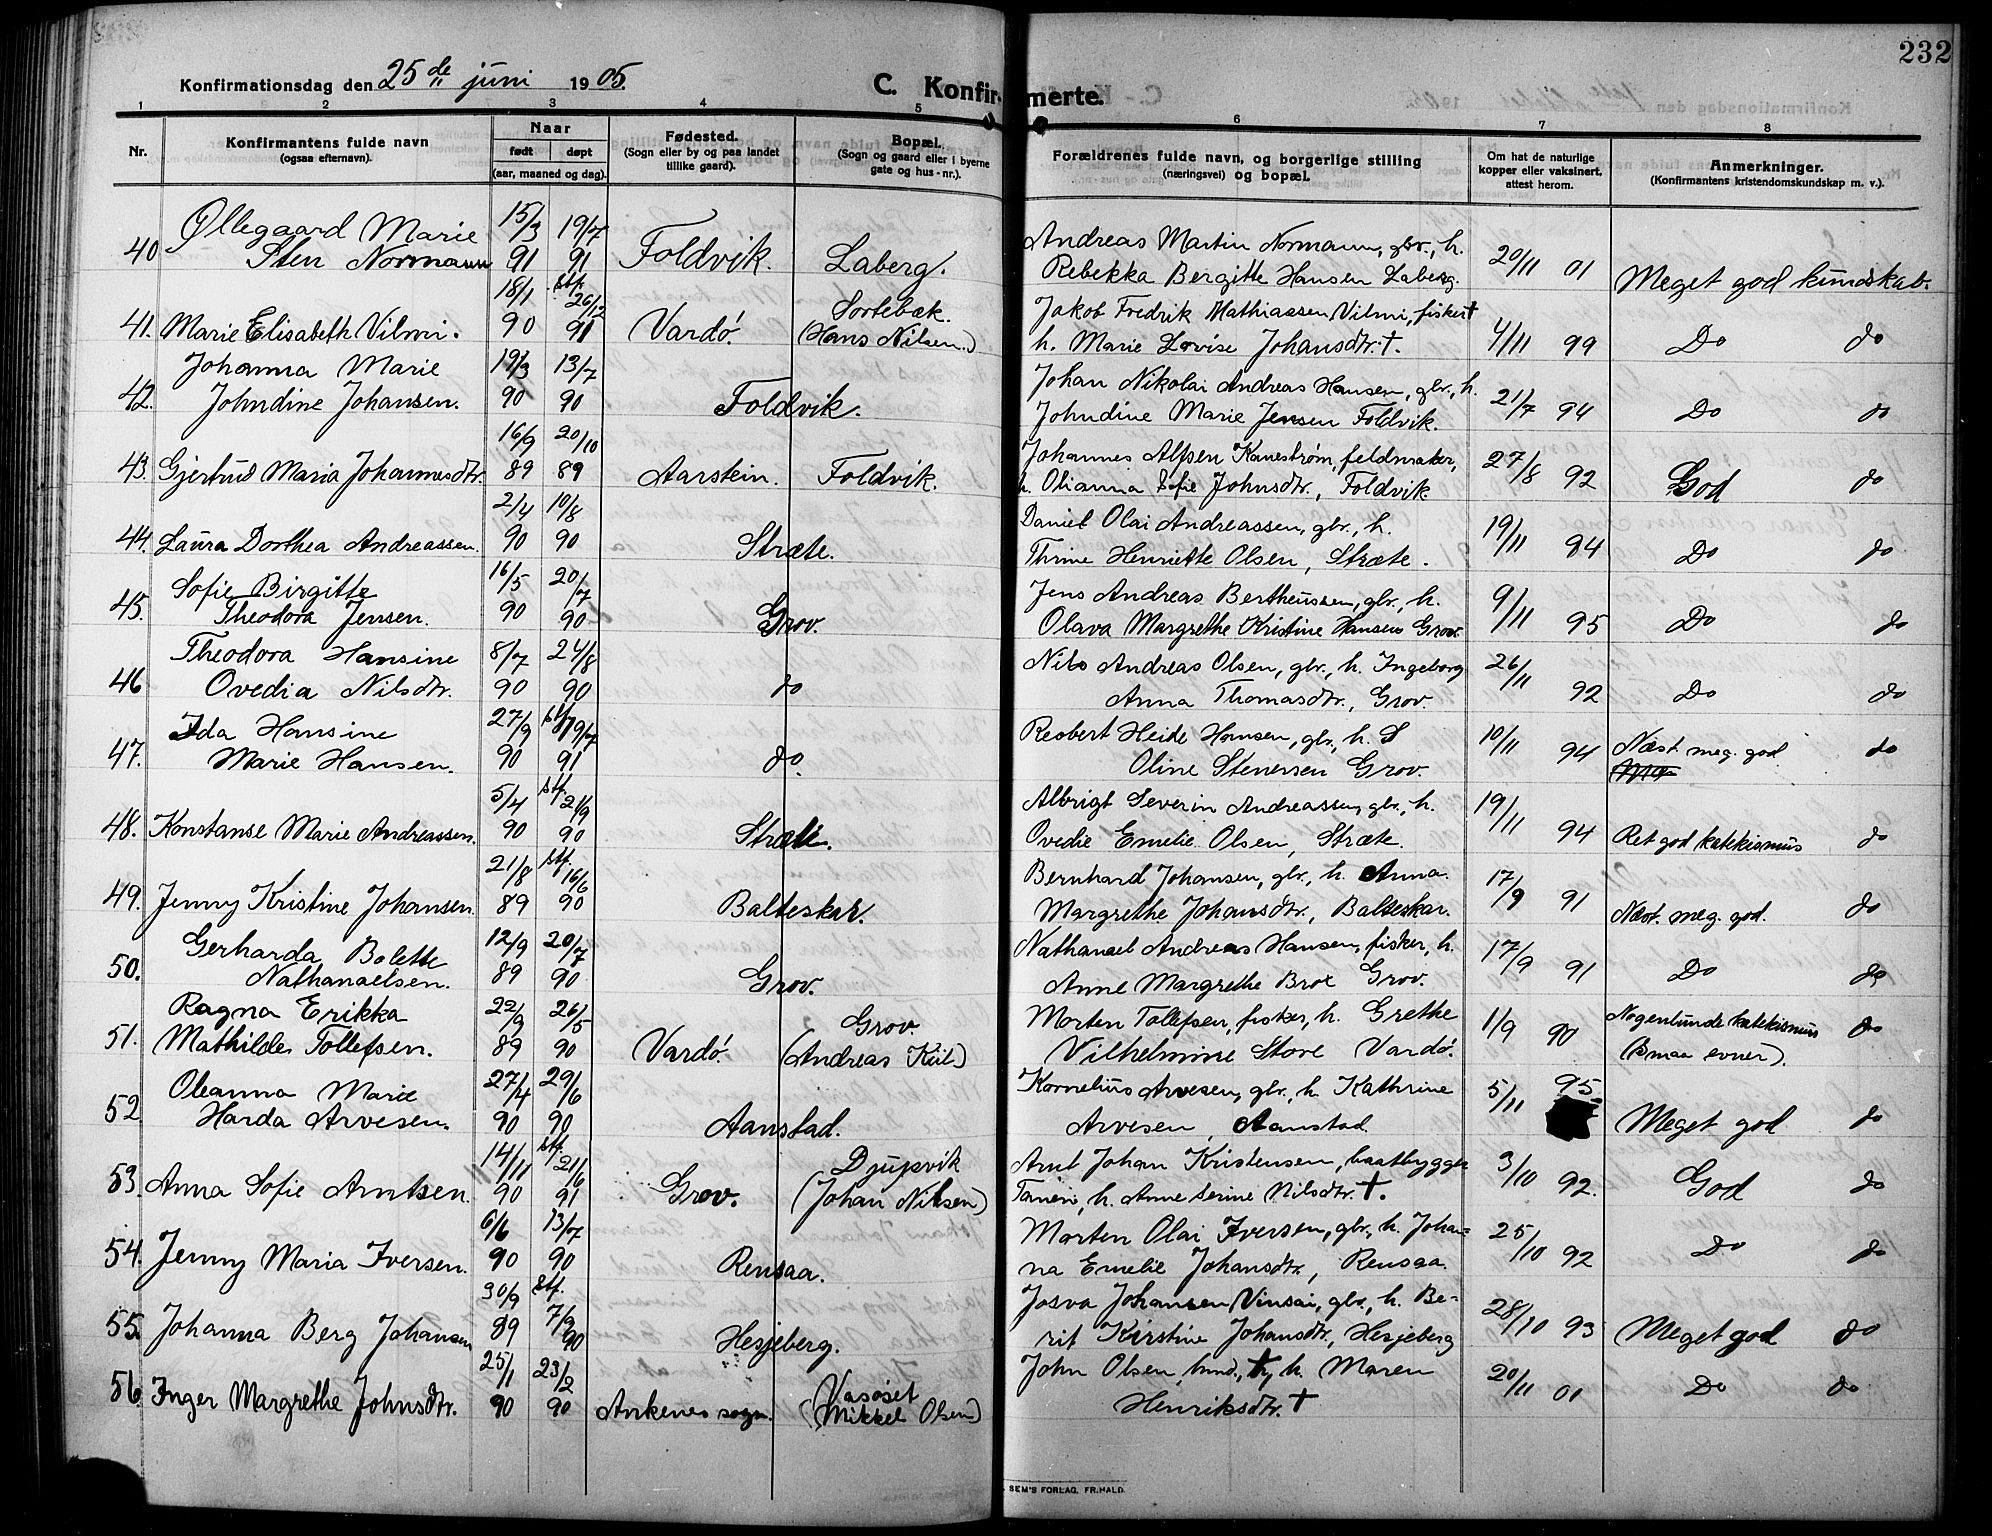 232
Konfirmationsdag den 25de juni 1905.
C. Konfirmerte.
1 2 3 4 5 6 7 8
Nr.
Konfirmantens fulde navn
(ogsaa efternavn).
Naar
født døpt
(aar, maaned og dag).
Fødested.
(Sogn eller by og paa landet
tillike gaard).
Bopæl.
(Sogn og gaard eller i byerne
gate og hus-nr.).
Forældrenes fulde navn, og borgerlige stilling
(næringsvei) og bopæl.
Om hat de naturlige
kopper eller vaksinert,
attest herom.
Anmerkninger.
(Konfirmantens kristendomskundskap m. v.).
Øllegaard Marie 15/3 19/7 Andreas Martin Normann, gbr., h. 20/11
40 Sten Normann 91 91 Foldvik. Laberg. Rebekka Bergitte Hansen Laberg. 01 Meget god kundskab.
18/1 stf. 26/12 Sortebæk. Jakob Fredrik Mathiassen Vilmi, fisker†
41. Marie Elisabeth Vilmi. 90 91 Vardö. (Hans Nilsen.) h. Marie Lovise Johansdtr. †. 4/11 99 Do do
Johanna Marie 19/3 13/7 Johan Nikolai Andreas Hansen, gbr., h.
42. Johndine Johansen. 90 90 Foldvik. Johndine Marie Jensen Foldvik. 21/7 94 Do do
16/9 20/10 Johannes Alfsen Kanestrøm, feldmaker,
43. Gjertrud Maria Johannesdtr. 89 89 Aarstein. Foldvik. h. Olianna Sofie Johnsdtr., Foldvik 27/8 92 God do
2/4 10/8 Daniel Olai Andreassen, gbr., h.
44. Laura Dorthea Andreassen. 90 90 Stræte. Thrine Henriette Olsen, Stræte. 19/11 94 Do do
Sofie Birgitte 16/5 20/7 Jens Andreas Bertheussen, gbr., h.
45. Theodora Jensen. 90 90 Grov. Olava Margrethe Kristine Hansen Grov. 9/11 95 Do do
Theodora Hansine 8/7 24/8 Nils Andreas Olsen, gbr., h. Ingeborg
46 Ovedia Nilsdtr. 90 90 do Anna Thomasdtr., Grov. 26/11 92 Do do
Ida Hansine 27/9 stf 19/7 Reobert Heide Hansen, gbr., h. S
47. Marie Hansen. 90 91 do. Oline Stenersen Grov. 10/11 94 Næst. meg. god do
5/4 stf. 21/9 Albrigt Severin Andreassen, gbr., h.
48. Konstanse Marie Andreassen. 90 90 Stræte. Ovedie Emelie Olsen, Stræte. 19/11 94 Ret god katekismus do
21/8 stf. 16/6 Bernhard Johansen, gbr., h. Anna
49. Jenny Kristine Johansen. 89 90 Balteskar. Margrethe Johansdtr., Balteskar. 17/9 91 Næst. meg. god. do
Gerharda Bolette 12/9 20/7 Nathanael Andreas Hansen, fisker, h.
50. Nathanaelsen. 89 90 Grov. Anne Margrethe Brox Grov. 17/9 91 Do do
Ragna Erikka 22/9 26/5 Grov. Morten Tollefsen, fisker, h. Grethe Nogenlunde katekismus
51. Mathilde Tollefsen. 89 90 Vardö. (Andreas Kiil) Vilhelmine Store Vardö. 1/9 90 (smaa evner). do
Oleanna Marie 27/4 29/6 Kornelius Arvesen, gbr., h. Kathrine 95
52 Harda Arvesen. 90 90 Aanstad. Arvesen, Aanstad. 5/11 Meget god do
14/11 stf. 21/6 Djupvik Arnt Johan Kristensen, baatbygger
53. Anna Sofie Arntsen. 90 91 Grov. (Johan Nilsen) h. Anne Serine Nilsdtr. †. 3/10 92. God do
6/6 13/7 Morten Olai Iversen, gbr., h. Johan-
54. Jenny Maria Iversen. 90 90 Rensaa. na Emelie Johansdtr., Rensaa. 25/10 92 Do do
30/9 stf. 7/9 Josva Johansen Vinsai, gbr., h. Be-
55. Johanna Berg Johansen 89 90 Hesjeberg. rit Kirstine Johansdtr., Hesjeberg 28/10 93 Meget god do
25/1 23/2 Vasøset John Olsen, h. Maren
56 Inger Margrethe Johnsdtr. 90 90 Ankenes sogn. (Mikkel Olsen) Henriksdtr. † 20/11 01 Do do
SEM'S FORLAG, FR.HALD.